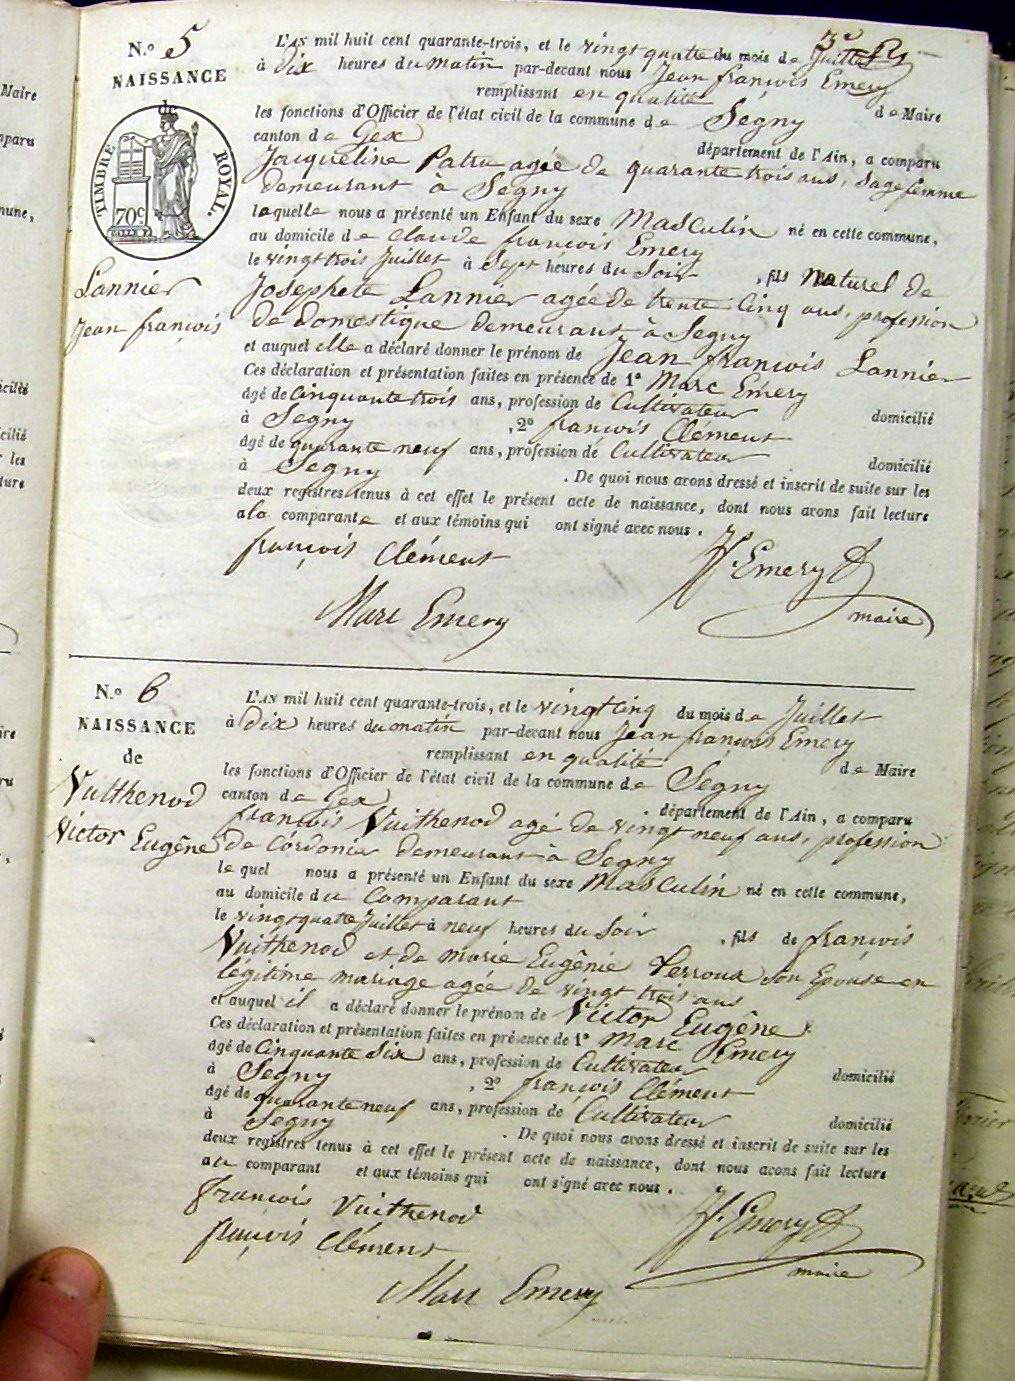 N.º 5
NAISSANCE
TIMBRE ROYAL.
70c
Lannier
Jean françois
L'AN mil huit cent quarante-trois, et le vingt quatre du mois de Juillet
à Dix heures du matin par-devant nous Jean françois Emery
remplissant en qualité de Maire
les fonctions d'Officier de l'état civil de la commune de Segny
canton de Gex département de l'Ain, a comparu
Jacqueline Patru agée de quarante trois ans, sage femme
demeurant à Segny
laquelle nous a présenté un Enfant du sexe Masculin né en cette commune,
au domicile de claude françois Emery
le vingt trois Juillet à Sept heures du Soir , fils naturel de
Josephete Lannier agée de trente Cinq ans, profession
de domestique demeurant à Segny
et auquel elle a déclaré donner le prénom de Jean françois Lannier
Ces déclaration et présentation faites en présence de 1º Marc Emery
âgé de Cinquante trois ans, profession de Cultivateur domicilié
à Segny , 2º françois Clément
âgé de quarante neuf ans, profession de Cultivateur domicilié
à Segny . De quoi nous avons dressé et inscrit de suite sur les
deux registres tenus à cet effet le présent acte de naissance, dont nous avons fait lecture
a la comparante et aux témoins qui ont signé avec nous .
françois Clément
Emery
maire
Marc Emery
N.º 6
NAISSANCE
de
Vuithenod
Victor Eugêne
L'AN mil huit cent quarante-trois, et le vingt Cinq du mois de Juillet
à Dix heures du matin par-devant nous Jean françois Emery
remplissant en qualité de Maire
les fonctions d'Officier de l'état civil de la commune de Segny
canton de Gex département de l'Ain, a comparu
françois Vuithenod agé de vingt neuf ans, profession
de Cordonier demeurant à Segny
le quel nous a présenté un Enfant du sexe Masculin né en cette commune,
au domicile du Comparant
le vingt quatre Juillet à neuf heures du Soir , fils de françois
Vuithenod et de marie Eugênie Perroux son Epouse en
légitime mariage agée de vingt trois ans
et auquel il a déclaré donner le prénom de Victor Eugêne
Ces déclaration et présentation faites en présence de 1º Marc Emery
âgé de Cinquante Six ans, profession de Cultivateur domicilié
à Segny , 2º françois Clément
âgé de quarante neuf ans, profession de Cultivateur domicilié
à Segny . De quoi nous avons dressé et inscrit de suite sur les
deux registres tenus à cet effet le présent acte de naissance, dont nous avons fait lecture
au comparant et aux témoins qui ont signé avec nous .
francois Vuithenod
françois Clément
Emery
maire
Marc Emery